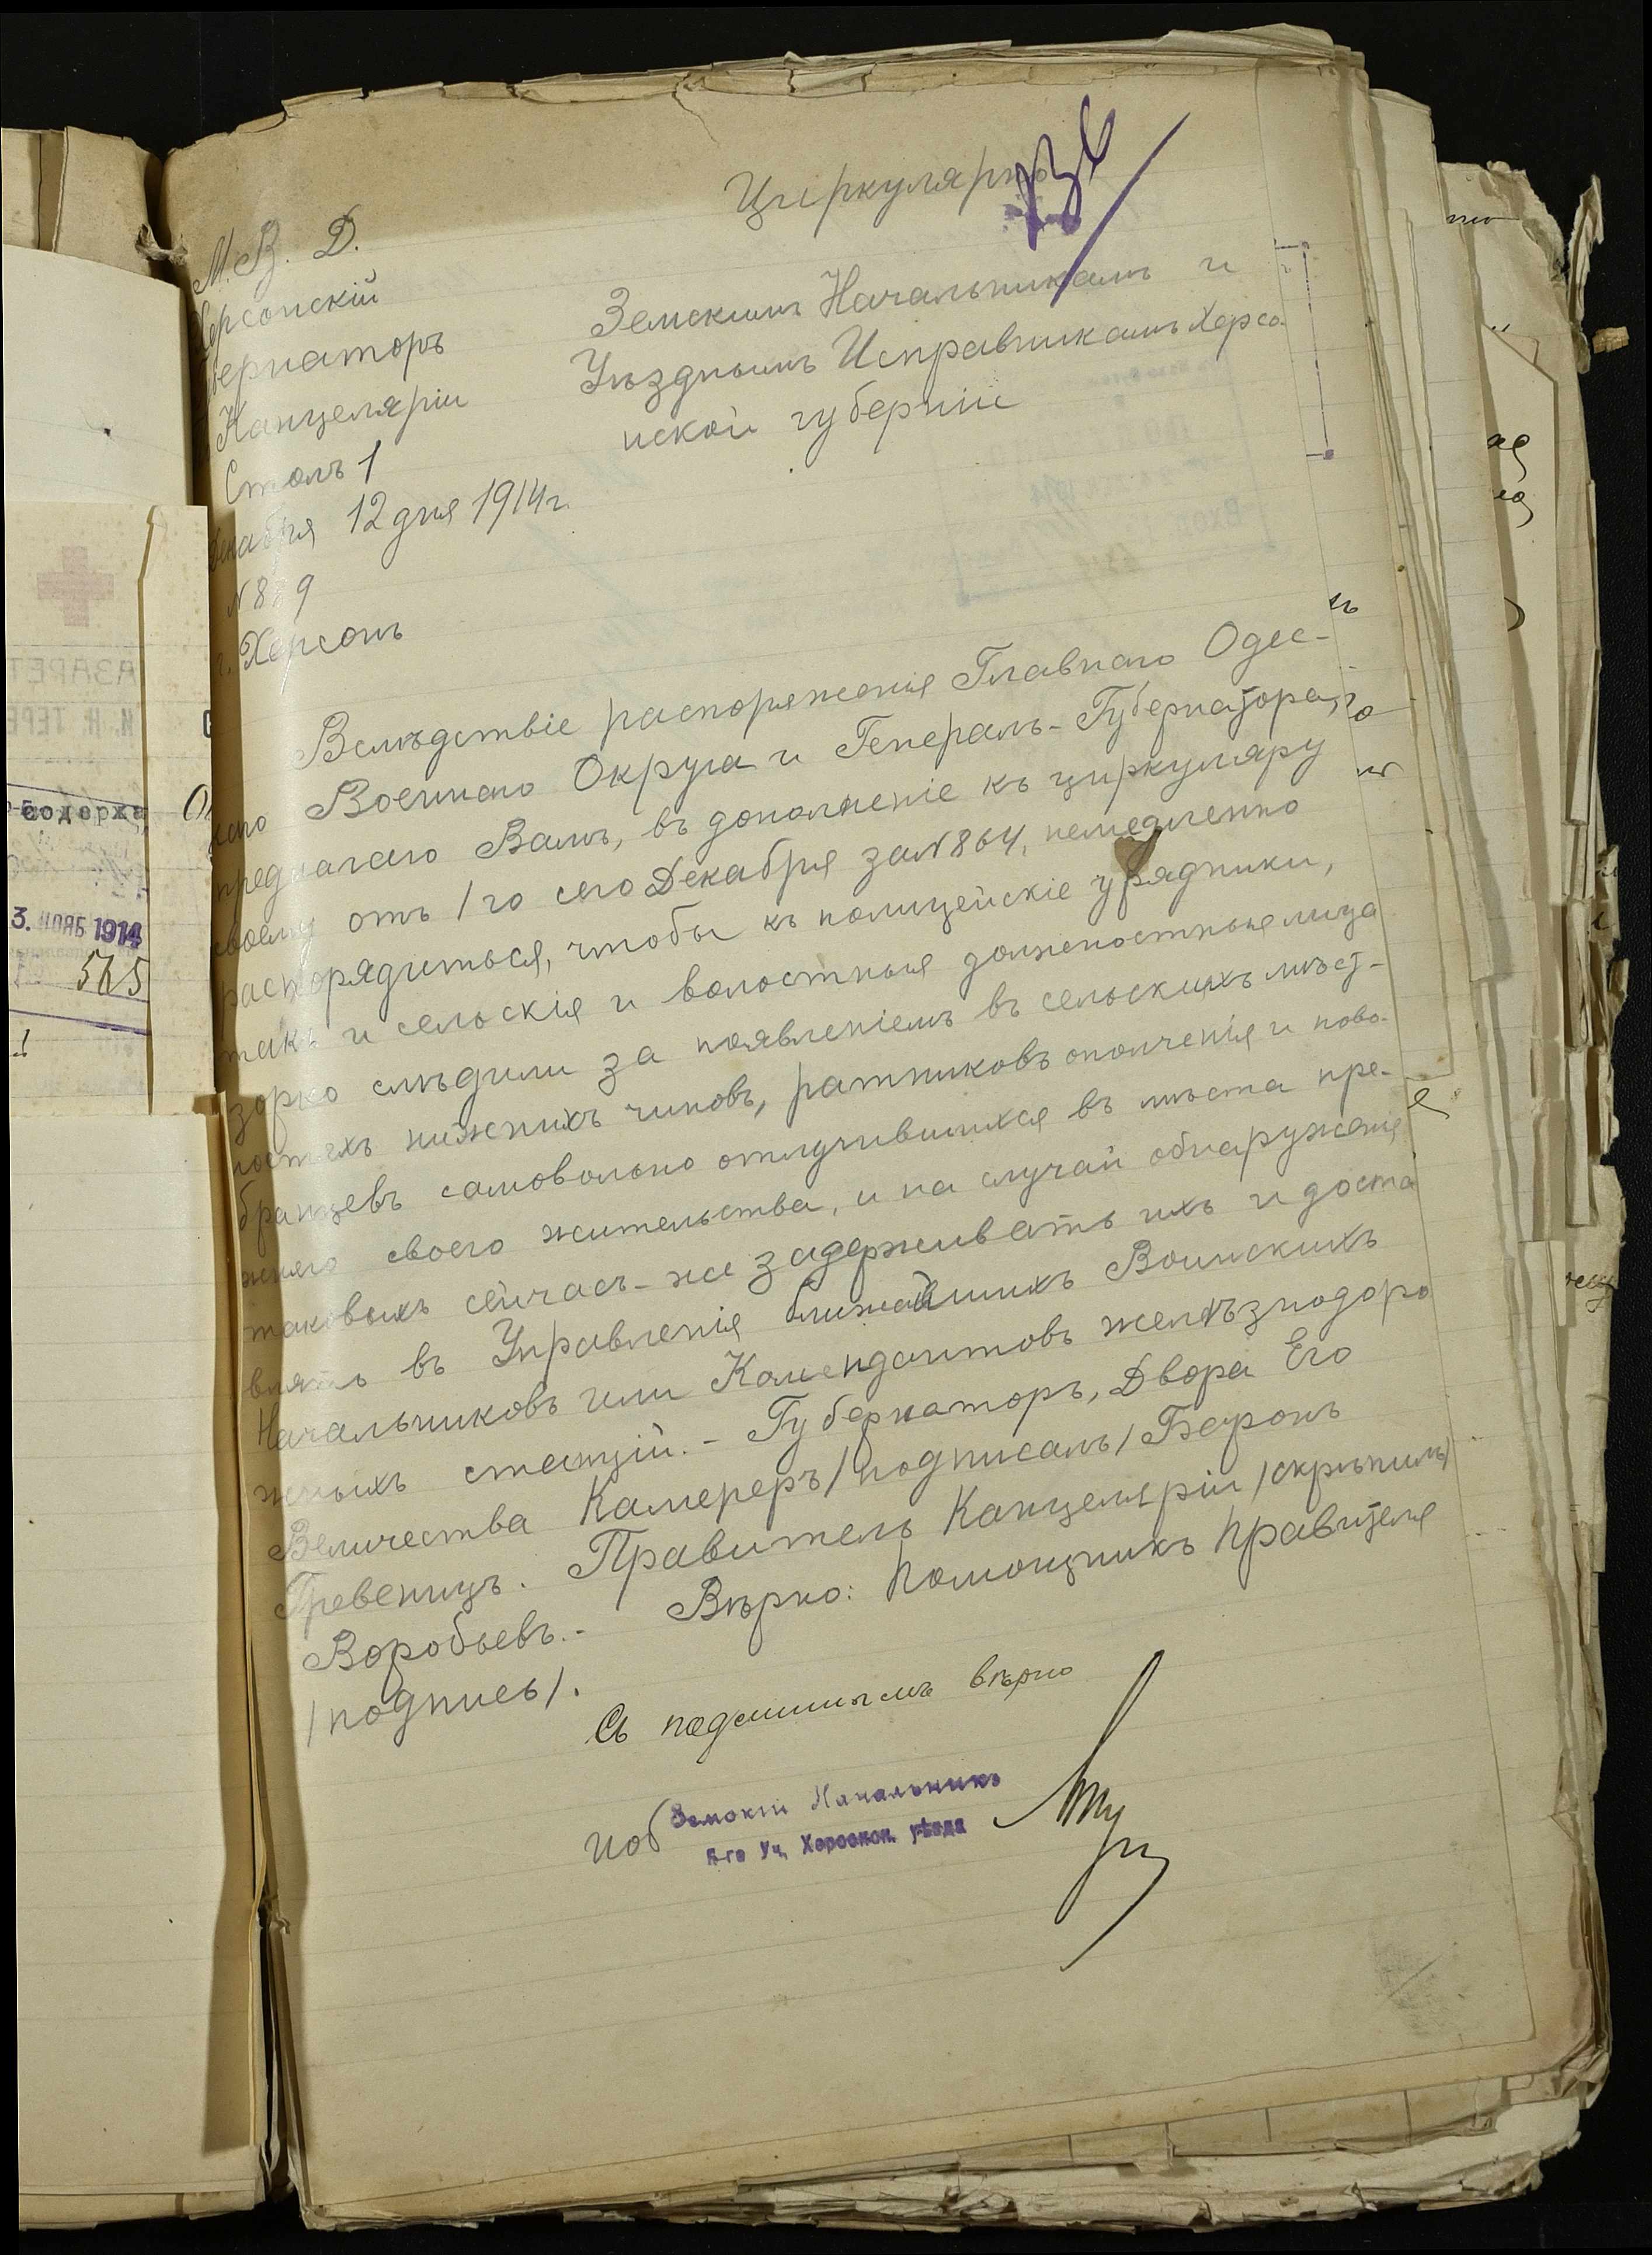 Циркулярно
М. В. Д.
Херсонскій
Губернаторъ
Канцеляріи
Столъ 1
Декабря 12 дня 1914 г.
г. Херсонъ
Земскимъ Начальникамъ и
Уѣзднымъ Исправникамъ Херсо-
нской губерніи
Вслѣдствіе распоряженія Главнаго Одес-
скаго Военнаго Округа и Генералъ-Губернатора,
предлагаю Вамъ, въ дополненіе къ циркуляру
своему отъ 1го сего Декабря за N 864, немедленно
распорядиться, чтобы къ полицейскіе урядники,
такъ и сельскія и волостныя должностныя лица
зорко слѣдили за появленіемъ въ сельскихъ мѣст-
ностяхъ нижнихъ чиновъ, ратниковъ ополченія и ново-
бранцевъ самовольно отлучившихся въ мѣста пре-
жняго своего жительства, и на случай обнаруженія
таковыхъ сейчасъ-же задерживать ихъ и доста
влять въ Управленія ближайшихъ Воинскихъ
Начальниковъ или Комендантовъ желѣзнодоро
жныхъ станцій. - Губернаторъ, Двора Его
Величества Камергеръ /подписалъ/ Баронъ
Гревеницъ. Правитель Канцеляріи /скрѣпилъ/
Воробьевъ. - Вѣрно: Помощникъ Правителя
/подпись/.
Съ подлиннымъ вѣрно
Иоб Земскій Начальникъ
5-го Уч. Херсонск. уѣзда
содержа
3. НОЯБ 1914
565